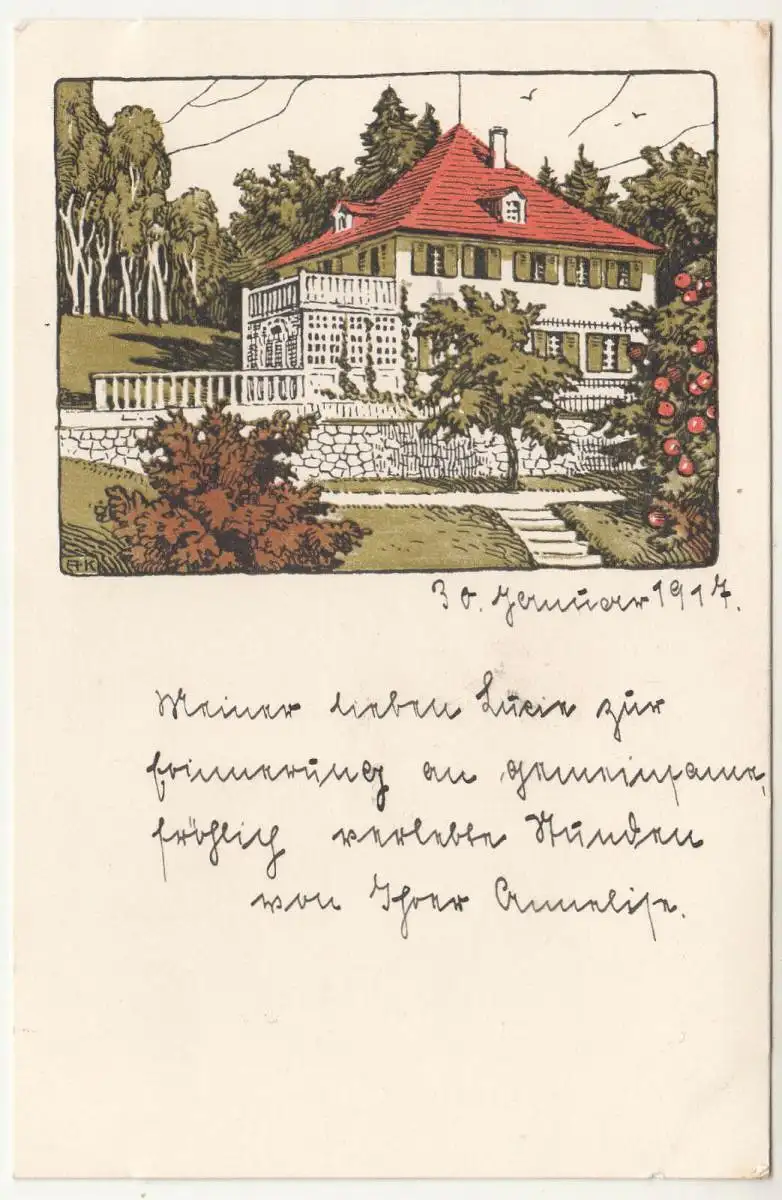 AK
30. Januar 1917.
Meiner lieben Lucie zur
Erinnerung an gemeinsame,
fröhlich verlebte Stunden
von Ihrer Annelise.